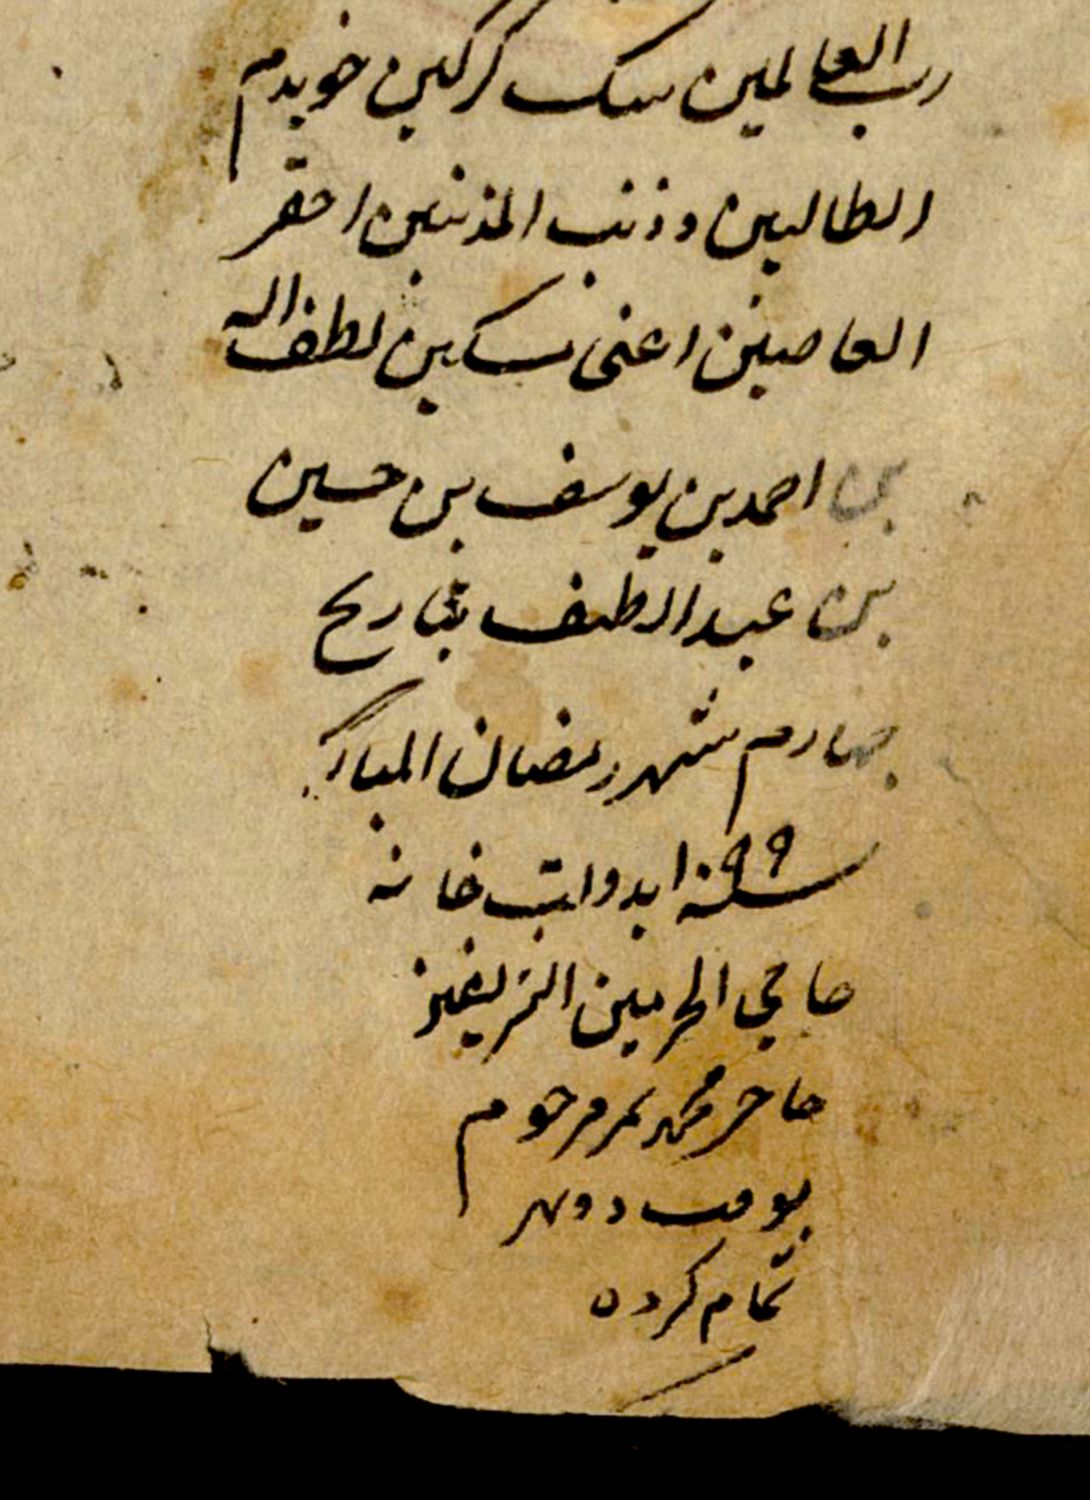 رب العالمین سک کرکین خویدم
الطالبین و ذنب المذنبین احقر
العاصین اعنی مسکین لطف الله
بن احمد بن یوسف بن حسین
بن عبد الطیف بتاریخ
چهارم شهر رمضان المبارک
سنه ۱۰۹۹ بدولت خانه
حاجی الحرمین الشریفین
حاجر محمد مرحوم
بوقت دوپهر
تمام کرده